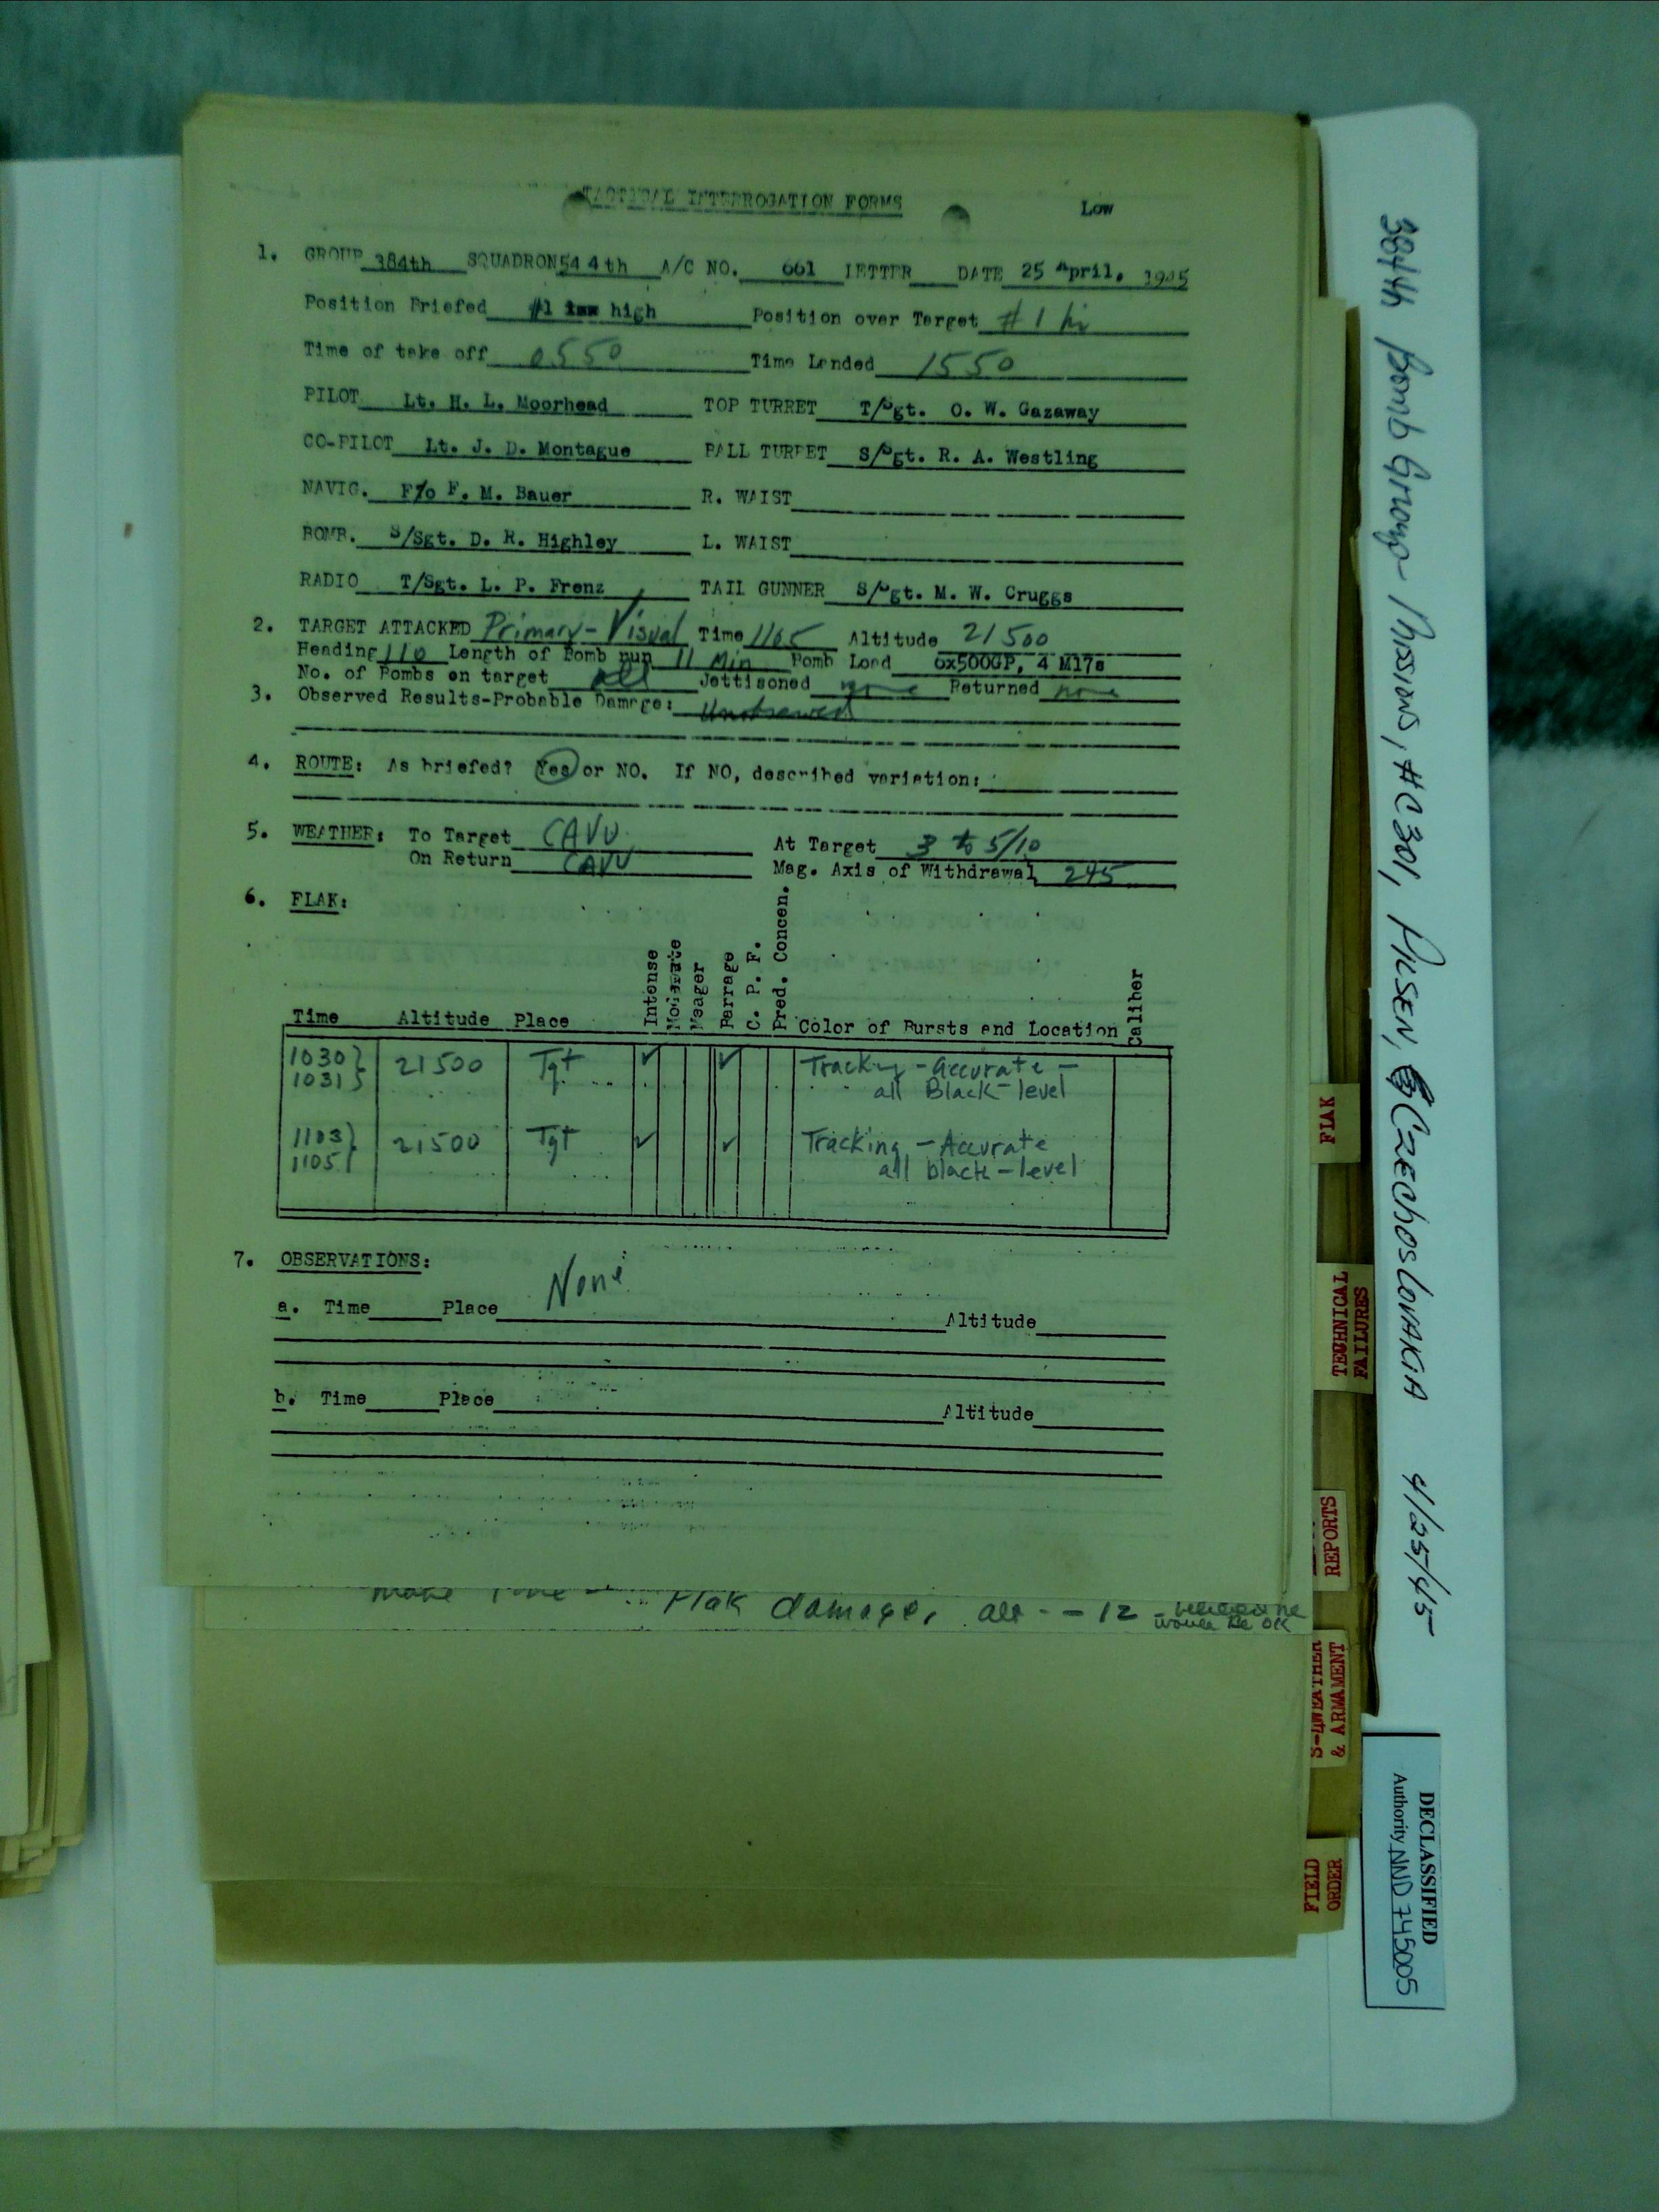 TACTICAL INTERROGATION FORMS Low
1. GROUP 384th SQUADRON 544th A/C NO. 661 LETTER DATE 25 April, 1945
Position Briefed #1 high Position over Target #1 hi
Time of take off 0550 Time Landed 1550
PILOT Lt. H. L. Moorhead TOP TURRET T/Sgt. O. W. Gazaway
CO-PILOT Lt. J. D. Montague BALL TURRET S/Sgt. R. A. Westling
NAVIG. F/O F. M. Bauer R. WAIST
BOMB. S/Sgt. D. R. Highley L. WAIST
RADIO T/Sgt. L. P. Frenz TAIL GUNNER S/Sgt. M. W. Cruggs
2. TARGET ATTACKED Primary - Visual Time 1105 Altitude 21500
Heading 110 Length of Bomb run 11 Min Bomb Load 6x500GP, 4 M17s
No. of Bombs on target all Jettisoned none Returned none
3. Observed Results-Probable Damage: Unobserved
4. ROUTE: As briefed? Yes or NO. If NO, described variation:
5. WEATHER: To Target CAVU At Target 3 to 5/10
On Return CAVU Mag. Axis of Withdrawal 245
6. FLAK:
Time Altitude Place Intense Moderate Meager Barrage C. P. F. Pred. Concen. Color of Bursts and Location Caliber
1030} 21500 Tgt ✓ ✓ Tracking - Accurate -
1031} all Black - level
1103} 21500 Tgt ✓ ✓ Tracking - Accurate
1105} all black - level
7. OBSERVATIONS:
None
a. Time Place Altitude
b. Time Place Altitude
Flak damage, - 12
would be OK
384th Bomb Group Missions, #C301, PILSEN, CZEChosLovAKiA 4/25/45
FLAK
TECHNICAL
FAILURES
REPORTS
S-4 WEATHER
& ARMAMENT
FIELD
ORDER
DECLASSIFIED
Authority NND 745005